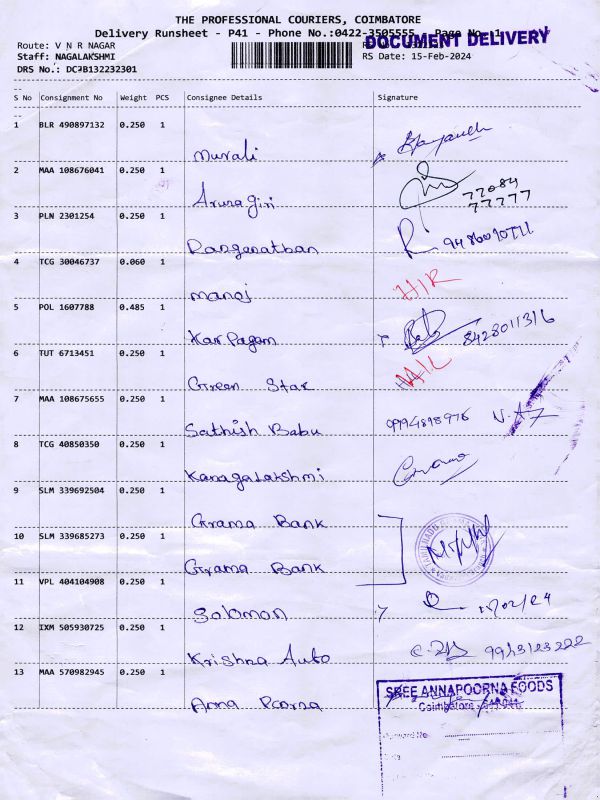 THE PROFESSIONAL COURIERS, COIMBATORE
Delivery Runsheet - P41 - Phone No.:0422-3505555, Page No. 1
DOCUMENT DELIVERY
Route: V N R NAGAR
Staff: NAGALAKSHMI
RS Date: 15-Feb-2024
DRS No.:
S No Consignment No Weight PCS Consignee Details Signature
1 BLR 490897132 0.250 1
Murali
2 MAA 108676041 0.250 1
Arunagiri 77084
77777
3 PLN 2301254 0.250 1
Rangenathan
4 TCG 30046737 0.060 1
Manoj H/R
5 POL 1607788 0.485 1
Karpagam 8428011316
6 TUT 6713451 0.250 1
Green Star
7 MAA 108675655 0.250 1
Sathish Babu 09994818976
8 TCG 40850350 0.250 1
Kanagalakshmi
9 SLM 339692504 0.250 1
Grama Bank
10 SLM 339685273 0.250 1
Grama Bank
11 VPL 404104908 0.250 1
Solomon
12 IXM 505930725 0.250 1
Krishna Auto
13 MAA 570982945 0.250 1
Anna Poorna
SREE ANNAPOORNA FOODS
Coimbatore - 641 041